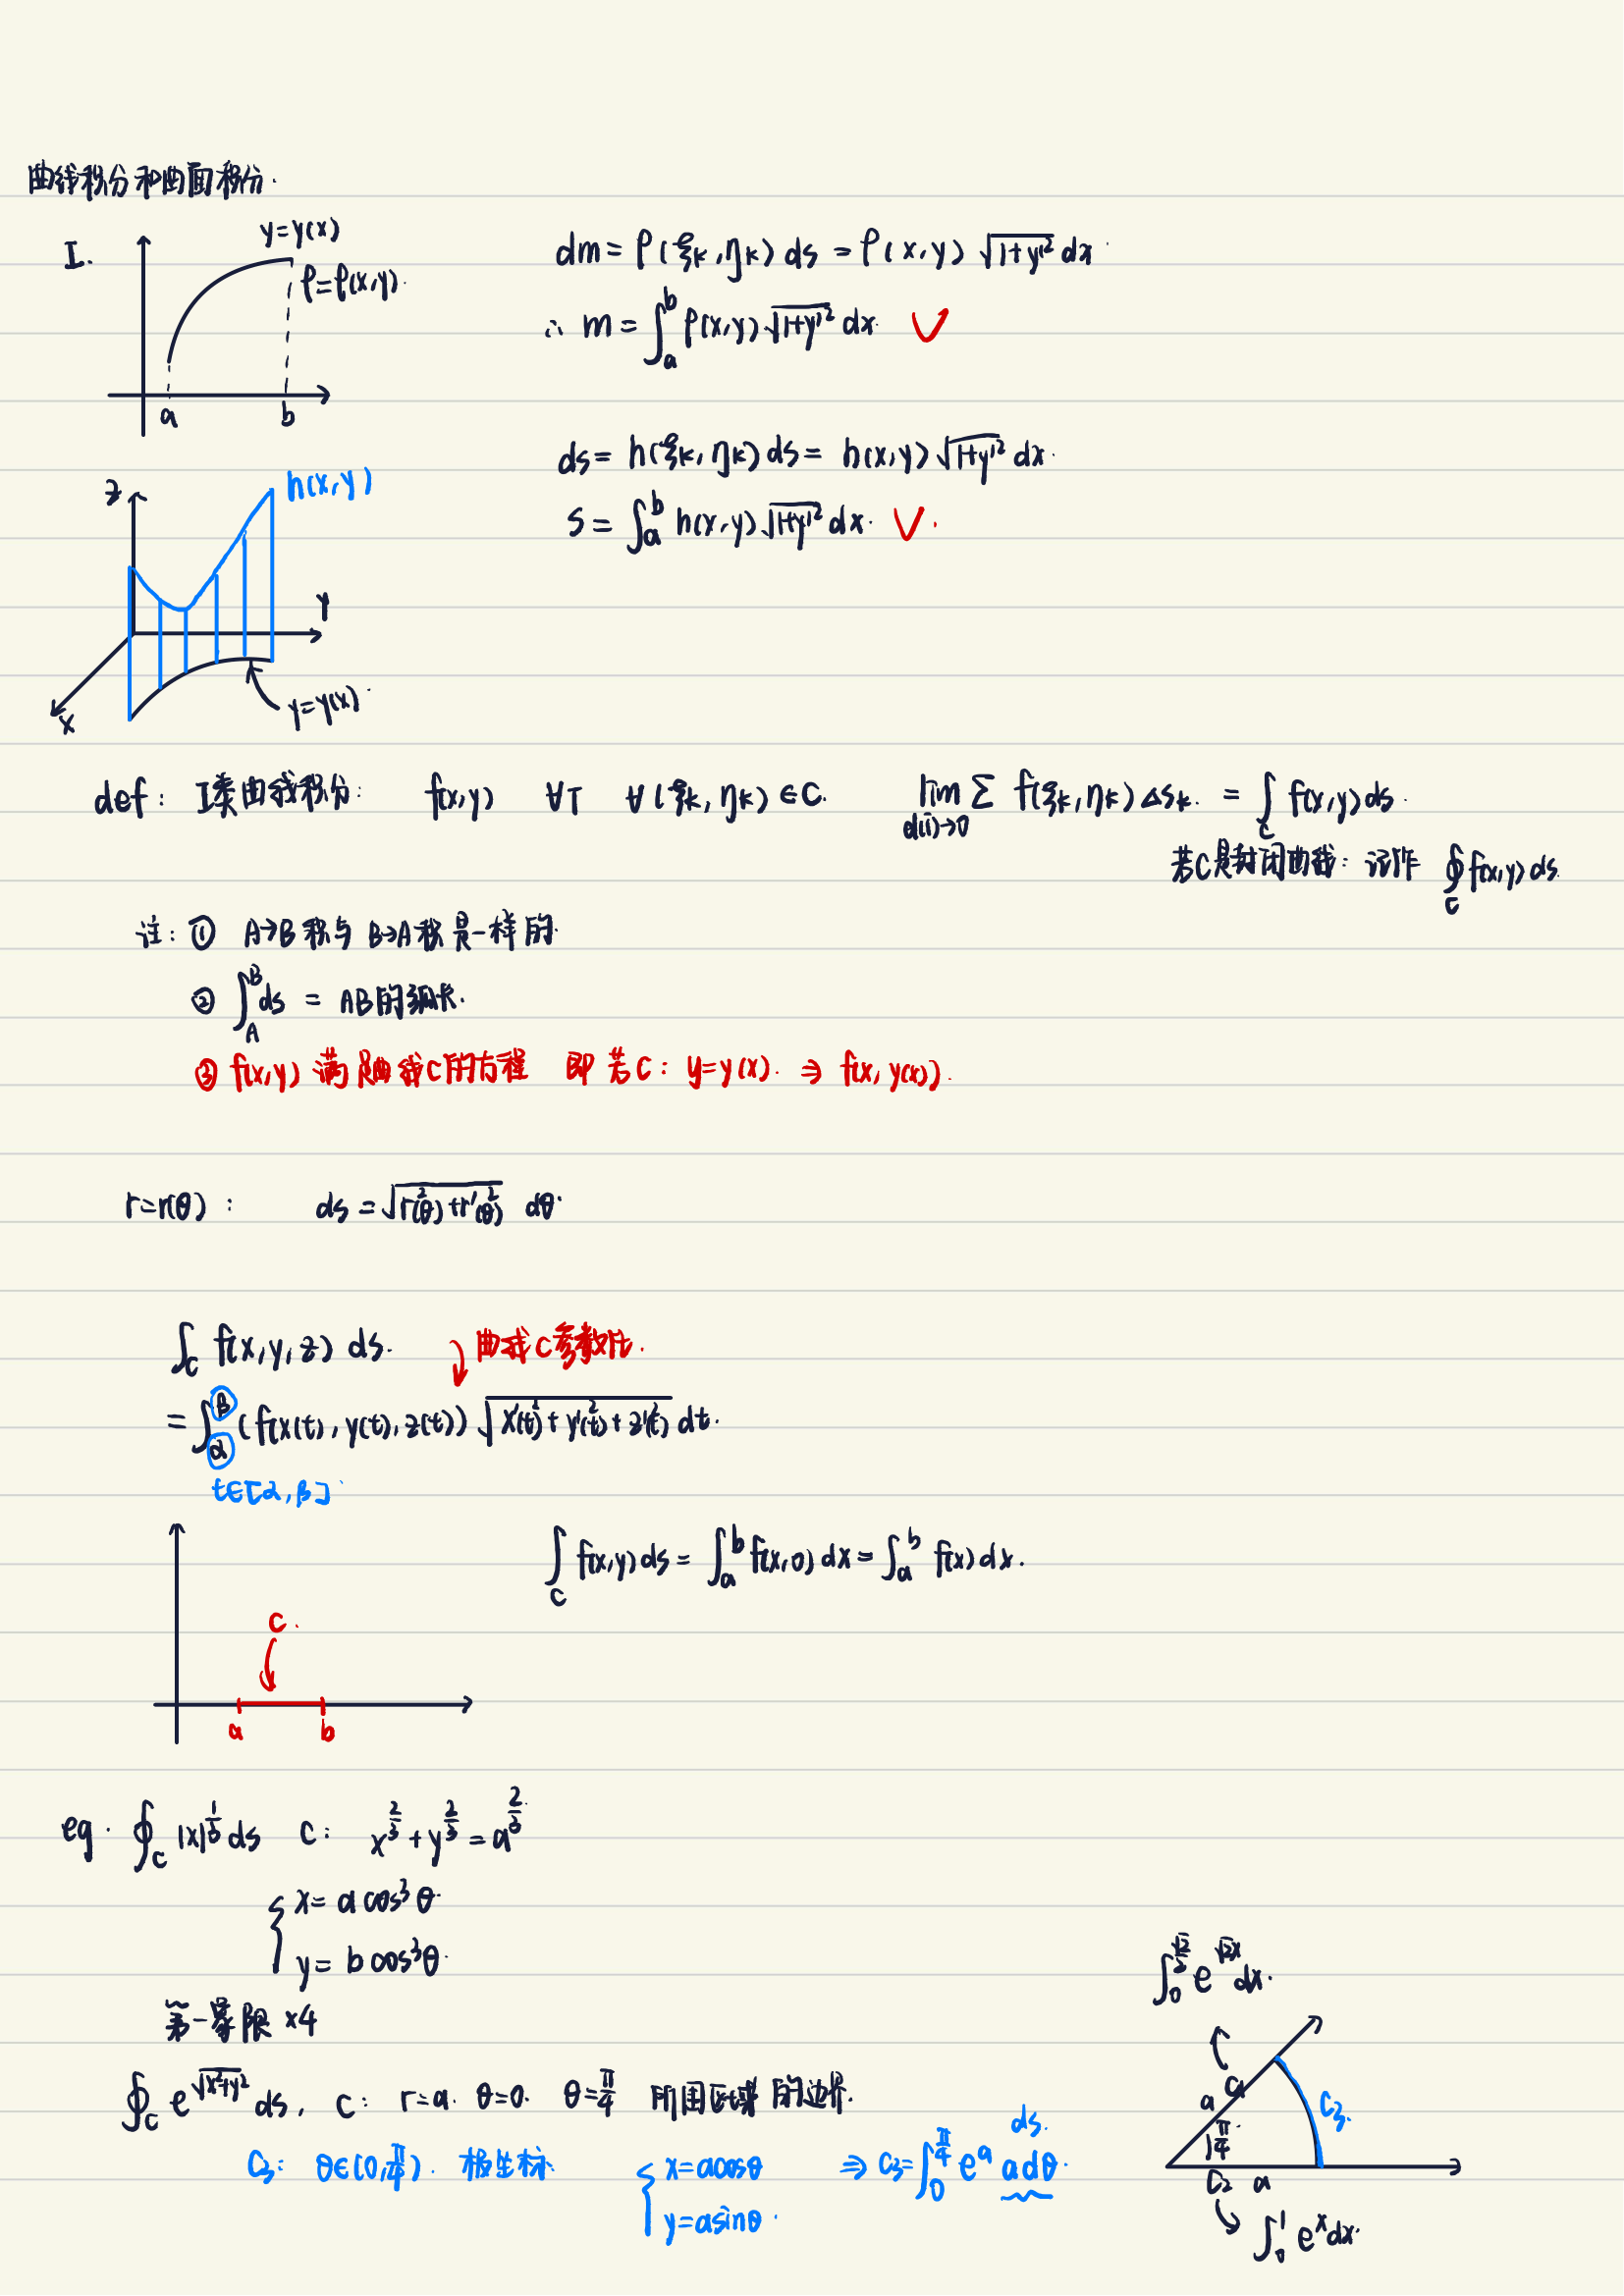 曲线积分和曲面积分.
I. y=y(x)
ρ=ρ(x,y).
a b
dm = ρ(ξk,ηk) ds = ρ(x,y) √(1+y'²) dx.
∴ m = ∫_a^b ρ(x,y) √(1+y'²) dx. ✓
z h(x,y)
Y
x y=y(x).
ds = h(ξk,ηk) ds = h(x,y) √(1+y'²) dx.
S = ∫_a^b h(x,y) √(1+y'²) dx. ✓.
def: I类曲线积分: f(x,y) ∀T ∀(ξk,ηk)∈C. lim_{d(i)→0} Σ f(ξk,ηk) Δsk. = ∫_C f(x,y) ds.
若C是封闭曲线: 记作 ∮_C f(x,y) ds.
注: ① A→B 积与 B→A 积是一样的.
② ∫_A^B ds = AB的弧长.
③ f(x,y) 满足曲线C的方程 即若C: y=y(x). ⇒ f(x,y(x)).
r=r(θ): ds = √(r²(θ)+r'²(θ)) dθ.
∫_C f(x,y,z) ds. 曲线C参数化.
= ∫_α^β (f(x(t),y(t),z(t)) √(x'(t)²+y'(t)²+z'(t)²) dt.
t∈[α,β]
C.
a b
∫_C f(x,y) ds = ∫_a^b f(x,0) dx = ∫_a^b f(x) dx.
eg. ∮_C |x|^{1/3} ds C: x^{2/3}+y^{2/3}=a^{2/3}.
{ x= a cos³θ.
y= b cos³θ.
第一象限 ×4
∮_C e^{√(x²+y²)} ds, C: r=a. θ=0. θ=π/4 所围区域的边界.
C₃: θ∈(0,π/4). 极坐标. { x=acosθ y=asinθ. ⇒ C₃=∫_0^{π/4} e^a a dθ. ds.
∫_0^{√2/2} e^{√2x} dx.
a C₁ C₃.
π/4
C₂ a
∫_0^1 e^x dx.